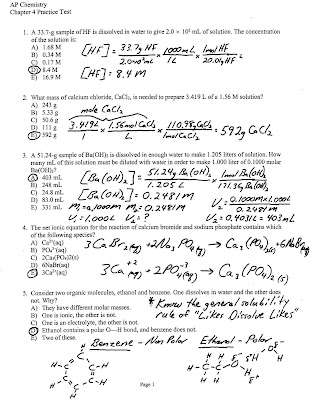 AP Chemistry
Chapter 4 Practice Test
1. A 33.7-g sample of HF is dissolved in water to give 2.0 × 10² mL of solution. The concentration
of the solution is:
A) 1.68 M
B) 0.34 M
C) 0.17 M
D) 8.4 M
E) 16.9 M
[HF] = 33.7g HF / 2.0×10² mL | 1000mL / 1L | 1mol HF / 20.0g HF
[HF] = 8.4 M
2. What mass of calcium chloride, CaCl₂, is needed to prepare 3.419 L of a 1.56 M solution?
A) 243 g
B) 5.33 g
C) 50.6 g
D) 111 g
E) 592 g
mole CaCl₂
3.419L / 1 | 1.56mol CaCl₂ / L | 110.98g CaCl₂ / 1mol CaCl₂ = 592g CaCl₂
3. A 51.24-g sample of Ba(OH)₂ is dissolved in enough water to make 1.205 liters of solution. How
many mL of this solution must be diluted with water in order to make 1.000 liter of 0.100 molar
Ba(OH)₂?
A) 403 mL
B) 248 mL
C) 24.8 mL
D) 83.0 mL
E) 331 mL
[Ba(OH)₂] = 51.24g Ba(OH)₂ / 1.205L | 1mol Ba(OH)₂ / 171.3g Ba(OH)₂
[Ba(OH)₂] = 0.2481 M
M₁=0.100M M₂=0.2481M
V₁=1.000L V₂=?
V₂ = 0.100M×1.000L / 0.2481M
V₂ = 0.403L = 403mL
4. The net ionic equation for the reaction of calcium bromide and sodium phosphate contains which
of the following species?
A) Ca²⁺(aq)
B) PO₄³⁻(aq)
C) 2Ca₃(PO₄)₂(s)
D) 6NaBr(aq)
E) 3Ca²⁺(aq)
3CaBr₂(aq) + 2Na₃PO₄(aq) → Ca₃(PO₄)₂(s) + 6NaBr(aq)
3Ca⁺²(aq) + 2PO₄⁻³(aq) → Ca₃(PO₄)₂(s)
5. Consider two organic molecules, ethanol and benzene. One dissolves in water and the other does
not. Why?
A) They have different molar masses.
B) One is ionic, the other is not.
C) One is an electrolyte, the other is not.
D) Ethanol contains a polar O—H bond, and benzene does not.
E) Two of these.
* Know the general solubility
rule of "Likes Dissolve Likes"
Benzene - Non Polar Ethanol - Polar
Page 1